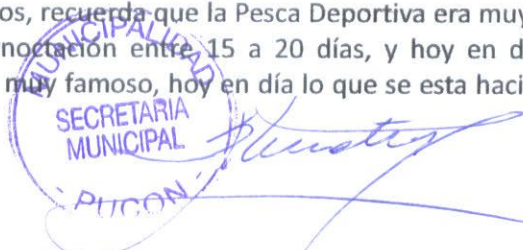 os, recuerda que la Pesca Deportiva era muy
noctación entre 15 a 20 días, y hoy en d
muy famoso, hoy en día lo que se esta haci
MUNICIPALIDAD
SECRETARIA
MUNICIPAL
PUCON